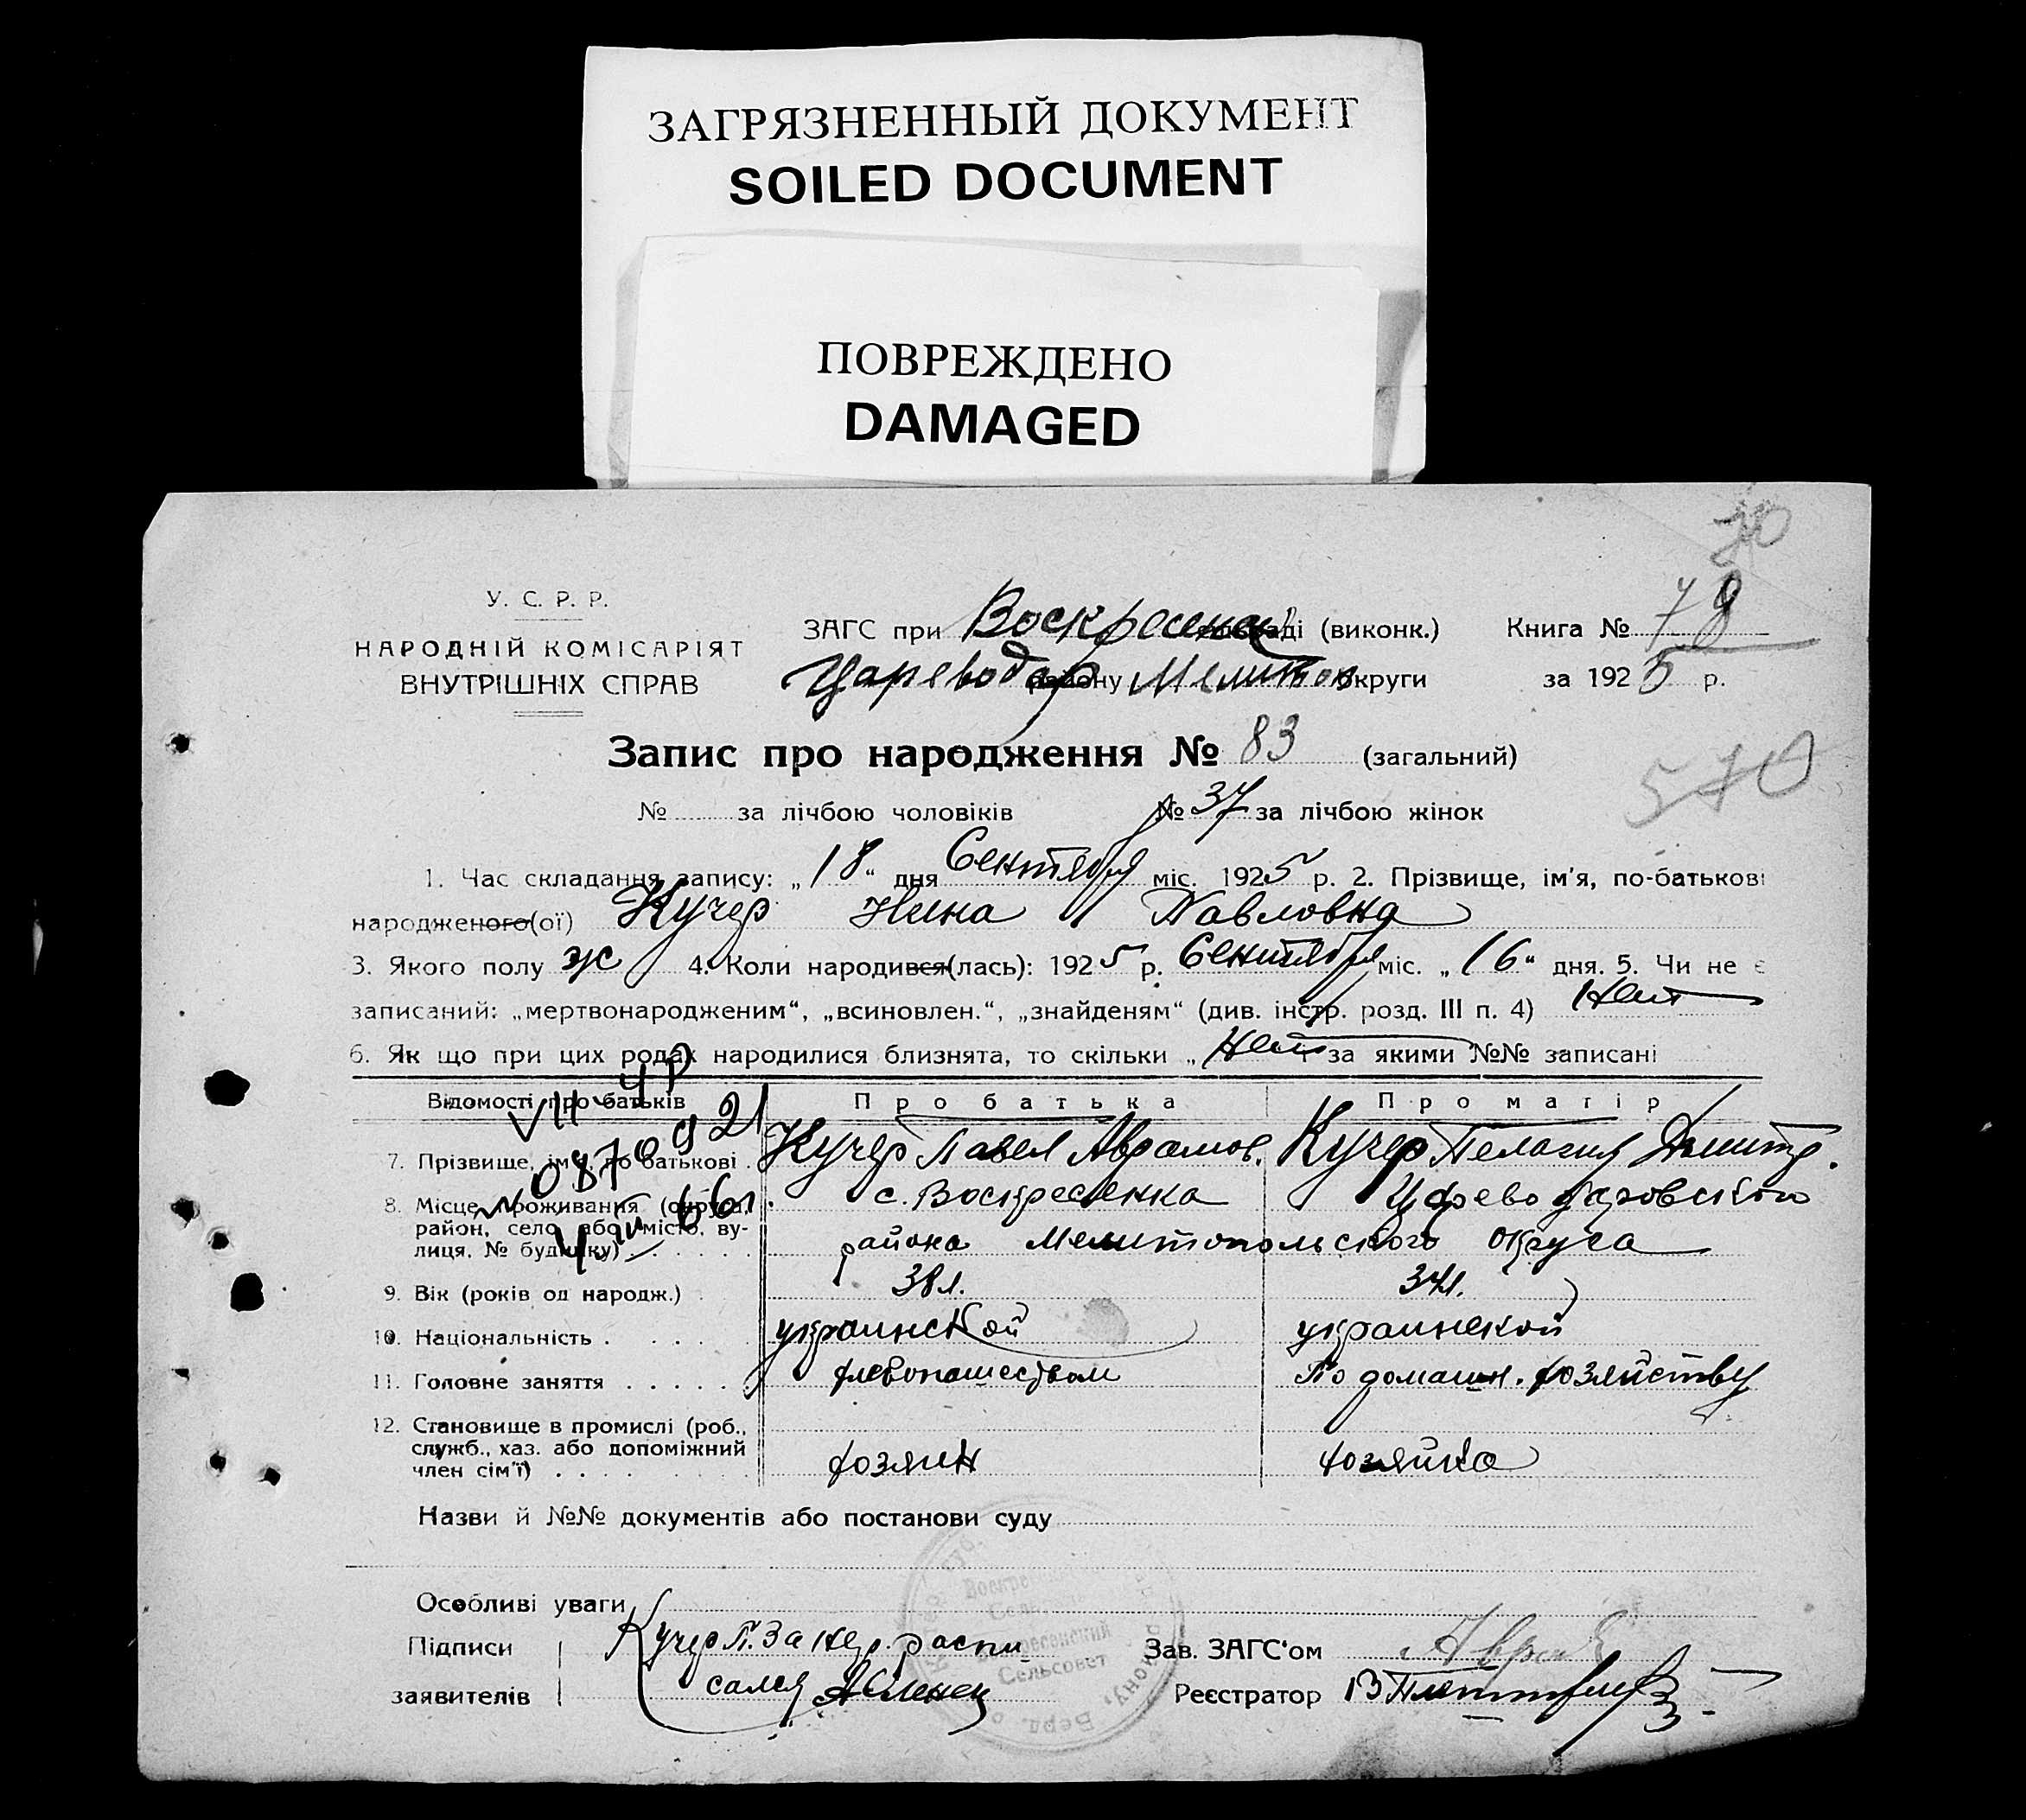 ЗАГРЯЗНЕННЫЙ ДОКУМЕНТ
SOILED DOCUMENT
ПОВРЕЖДЕНО
DAMAGED
70
У. С. Р. Р.
НАРОДНІЙ КОМІСАРІЯТ
ВНУТРІШНІХ СПРАВ
ЗАГС при Воскресенск раді (виконк.) Книга № 78
Цареводар району Мелитоп округи за 1925 р.
Запис про народження № 83 (загальний)
570
№ за лічбою чоловіків № 37 за лічбою жінок
1. Час складання запису: „18“ дня Сентября міс. 1925 р. 2. Прізвище, ім'я, по-батькові
народженого(ої) Кучер Нина Павловна
3. Якого полу ж 4. Коли народився(лась): 1925 р. Сентября міс. „16“ дня. 5. Чи не є
записаний: „мертвонародженим“, „всиновлен.“, „знайденям“ (див. інстр. розд. III п. 4) Нет
6. Як що при цих родах народилися близнята, то скільки „ Нет за якими №№ записані
Відомості про батьків Про батька Про матір
7. Прізвище, ім'я, по батькові Кучер Павел Аврамов. Кучер Пелагия Дмитр.
8. Місце проживання (округа, с. Воскресенка Цареводаровского
район, село або місто, ву-
лиця, № будинку) района Мелитопольского округа
9. Вік (років од народж.) 38 л. 34 л.
10. Національність украинской украинской
11. Головне заняття хлебопашеством По домашн. хозяйству
12. Становище в промислі (роб.,
служб., хаз. або допоміжний
член сім'ї) хозяин хозяйка
Назви й №№ документів або постанови суду
Особливі уваги
Підписи Кучер П. За нег. распи Зав. ЗАГС'ом
заявителів сался Реєстратор
Воскресенский
Сельсовет